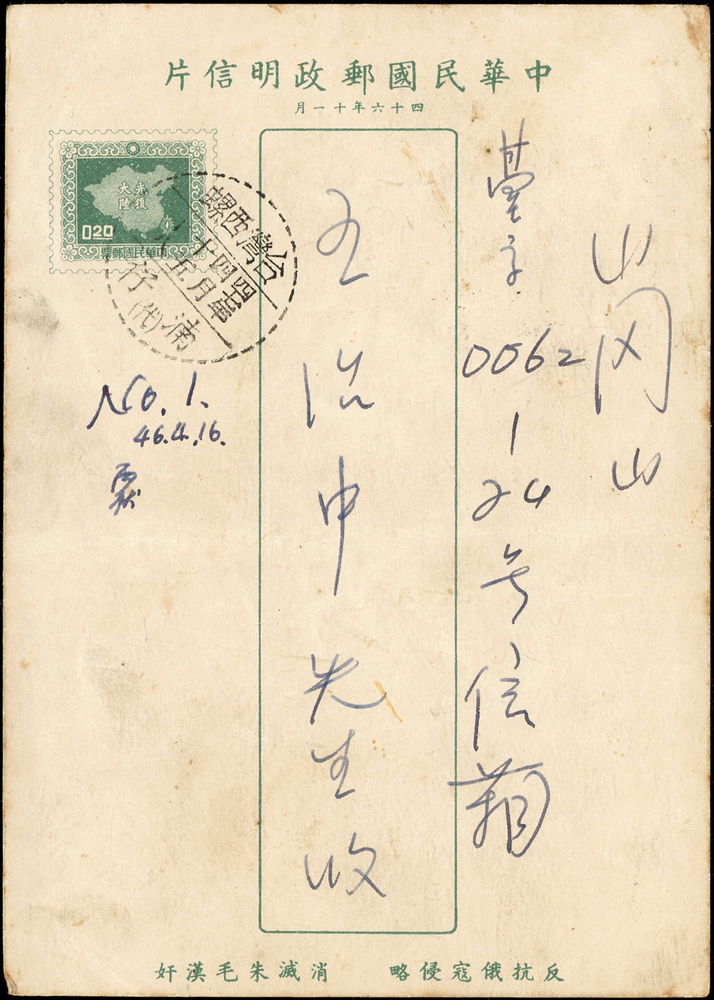 中華民國郵政明信片
四十六年十一月
光復大陸
0.20
中華民國郵票
台灣西螺
湳仔(代)
山冈山
0062
1
24
号信箱
王治申先生收
No. 1.
46.4.16.
反抗俄寇侵略 消滅朱毛漢奸